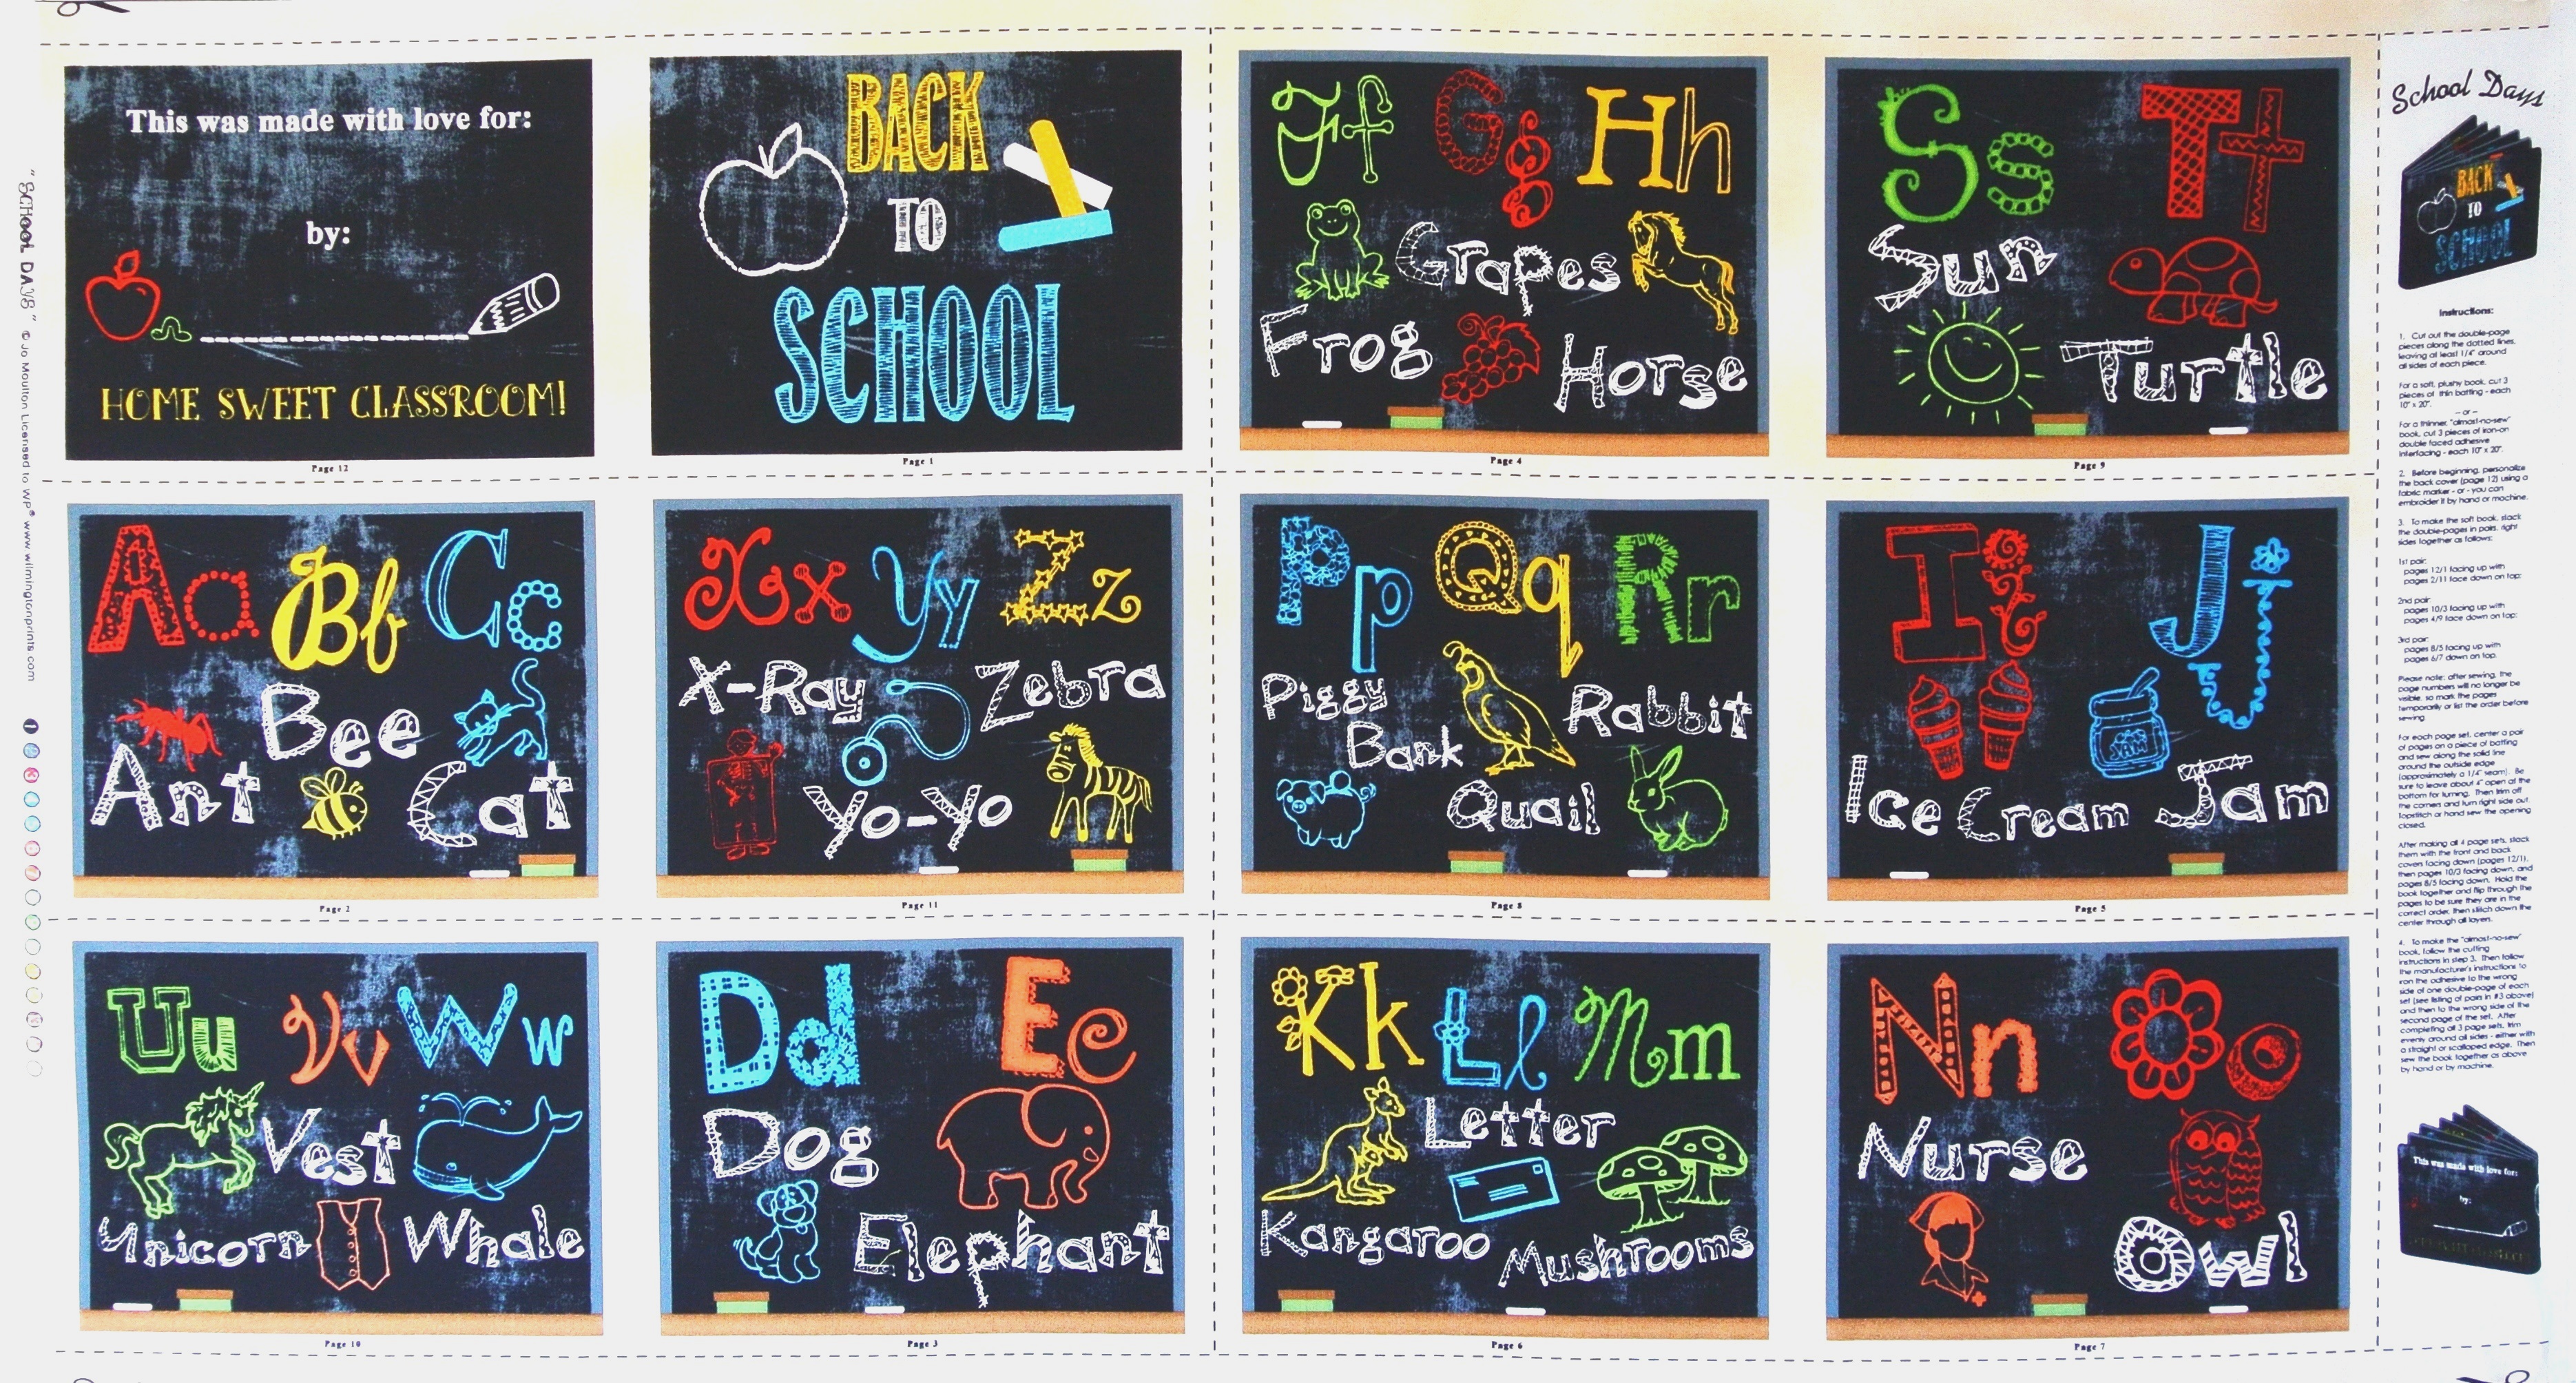 "SCHOOL DAYS" © Jo Moulton Licensed to WP® www.wilmingtonprints.com
This was made with love for:
by:
HOME SWEET CLASSROOM!
Page 12
BACK
TO
SCHOOL
Page 1
Ff Gg Hh
Grapes
Frog
Horse
Page 4
Ss Tt
Sun
Turtle
Page 9
Aa Bb Cc
Bee
Ant
Cat
Page 2
Xx Yy Zz
X-Ray
Zebra
Yo-Yo
Page 11
Pp Qq Rr
Piggy
Bank
Rabbit
Quail
Page 8
Ii Jj
JAM
Ice Cream
Jam
Page 5
Uu Vv Ww
Vest
Unicorn
Whale
Page 10
Dd Ee
Dog
Elephant
Page 3
Kk Ll Mm
Letter
Kangaroo
Mushrooms
Page 6
Nn Oo
Nurse
Owl
Page 7
School Days
BACK
TO
SCHOOL
Instructions:
1. Cut out the double-page
pieces along the dotted lines,
leaving at least 1/4" around
all sides of each piece.
For a soft, plushy book, cut 3
pieces of thin batting - each
10" x 20".
- or -
For a thinner, "almost-no-sew"
book, cut 3 pieces of iron-on
double faced adhesive
interfacing - each 10" x 20".
2. Before beginning, personalize
the back cover (page 12) using a
fabric marker - or - you can
embroider it by hand or machine.
3. To make the soft book, stack
the double-pages in pairs, right
sides together as follows:
1st pair:
pages 12/1 facing up with
pages 2/11 face down on top;
2nd pair:
pages 10/3 facing up with
pages 4/9 face down on top;
3rd pair:
pages 8/5 facing up with
pages 6/7 down on top.
Please note: after sewing, the
page numbers will no longer be
visible, so mark the pages
temporarily or list the order before
sewing.
For each page set, center a pair
of pages on a piece of batting
and sew along the solid line
around the outside edge
(approximately a 1/4" seam). Be
sure to leave about 4" open at the
bottom for turning. Then trim off
the corners and turn right side out.
Topstitch or hand sew the opening
closed.
After making all 4 page sets, stack
them with the front and back
covers facing down (pages 12/1),
then pages 10/3 facing down, and
pages 8/5 facing down. Hold the
book together and flip through the
pages to be sure they are in the
correct order, then stitch down the
center through all layers.
4. To make the "almost-no-sew"
book, follow the cutting
instructions in step 3. Then follow
the manufacturer's instructions to
iron the adhesive to the wrong
side of one double-page of each
set (see listing of pairs in #3 above)
and then to the wrong side of the
second page of the set. After
completing all 3 page sets, trim
evenly around all sides - either with
a straight or scalloped edge. Then
sew the book together as above
by hand or by machine.
This was made with love for:
by: